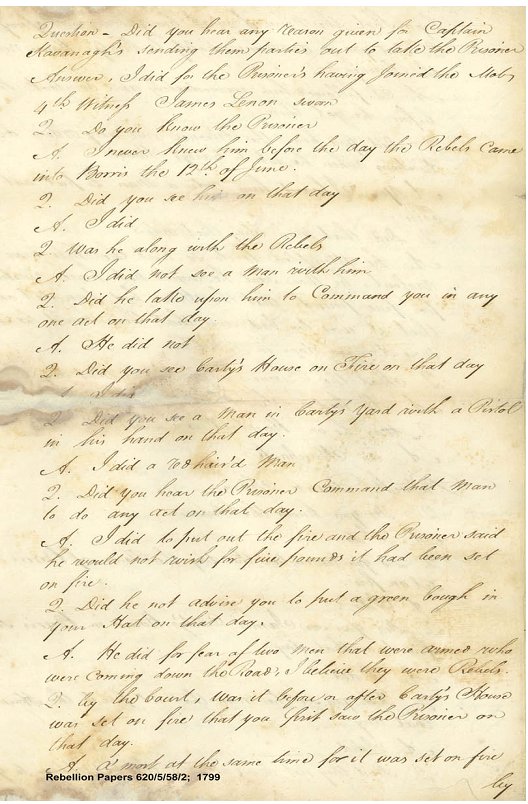 Question - Did you hear any reason given for Captain
Kavanagh's sending them parties out to take the Prisoner
Answer, I did for the Prisoner's having Joined the Mob,
4th Witness James Lenon sworn
Q. Do you know the Prisoner
A. I never knew him before the day the Rebels came
into Borris the 12th of June.
Q. Did you see him on that day
A. I did
Q. Was he along with the Rebels
A. I did not see a Man with him
Q. Did he take upon him to Command you in any
one act on that day.
A. He did not
Q. Did you see Carty's House on Fire on that day
A. I did
Q. Did you see a Man in Carty's Yard with a Pistol
in his hand on that day.
A. I did a red hair'd Man
Q. Did you hear the Prisoner Command that Man
to do any act on that day.
A. I did to put out the fire and the Prisoner said
he would not wish for five pounds it had been set
on fire.
Q. Did he not advise you to put a green bough in
your Hat on that day.
A. He did for fear of two men that were armed who
were Coming down the Road; I believe they were Rebels.
Q. by the Court, Was it before or after Carty's House
was set on fire that you first saw the Prisoner on
that day.
A. a'most at the same time for it was set on fire
by
Rebellion Papers 620/5/58/2; 1799